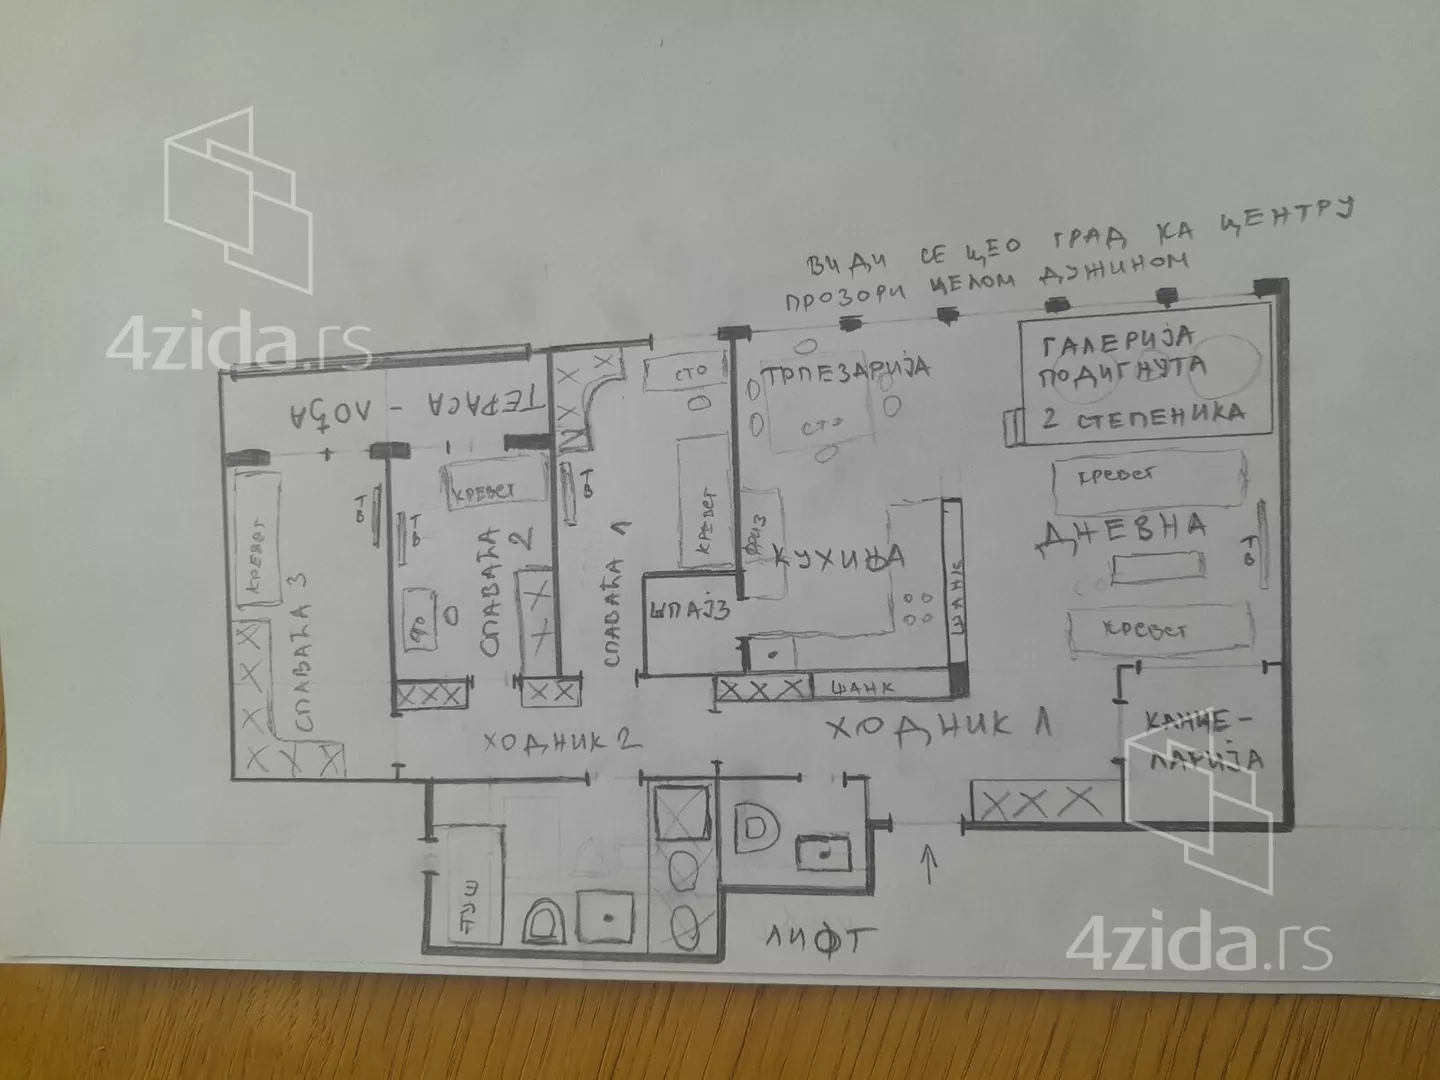 4zida.rs
ВИДИ СЕ ЦЕО ГРАД КА ЦЕНТРУ
ПРОЗОРИ ЦЕЛОМ ДУЖИНОМ
ТЕРАСА - ЛОЂА
СТО
ТРПЕЗАРИЈА
СТО
ГАЛЕРИЈА
ПОДИГНУТА
2 СТЕПЕНИКА
КРЕВЕТ
ТВ
ТВ
КРЕВЕТ
СПАВАЋА 3
СТО
СПАВАЋА 2
ТВ
КРЕВЕТ
СПАВАЋА 1
ШПАЈЗ
ФРИЗ
КУХИЊА
ШАНК
ШАНК
КРЕВЕТ
ДНЕВНА
ТВ
КРЕВЕТ
ХОДНИК 2
ХОДНИК 1
КАНЦЕ-
ЛАРИЈА
ТУШ
ЛИФТ
4zida.rs